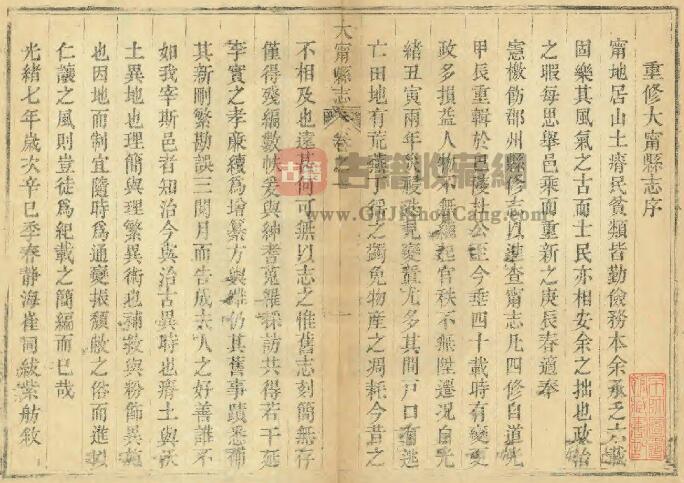 重修大甯縣志序
甯地居山土瘠民貧類皆勤儉務本余承乏六載
固樂其風氣之古而士民亦相安余之拙也政治
之暇每思舉邑乘而重新之庚辰春適奉
憲檄飭郡州縣修志以進查甯志凡四修自道光
甲辰重輯於邑杜公至今垂四十載時有變更
政多損益人物不無起官秩不無陞遷況自光
緒丑寅兩年變尤多其間戶口有逃
亡田地有荒蠲免物產之凋耗今昔之
大甯縣志 卷 一
不相及也遠甚何可無以志之惟舊志刻簡無存
僅得殘編數帙爰與紳耆蒐羅採訪共得若干延
李實之孝廉續為增纂方與仍其舊事蹟悉補
其新刪繁勘誤三閱月而告成夫人之好善誰不
如我宰斯邑者知治今與治古異時也瘠土與沃
土異地也理簡與理繁異術也補救與粉飾異施
也因地而制宜隨時為通變振頹敝之俗而進以
仁讓之風則豈徒為紀載之簡編而已哉
光緒七年歲次辛巳季春靜海崔同紱紫舫敘
古籍
古籍收藏網
www.GuJiShouCang.com